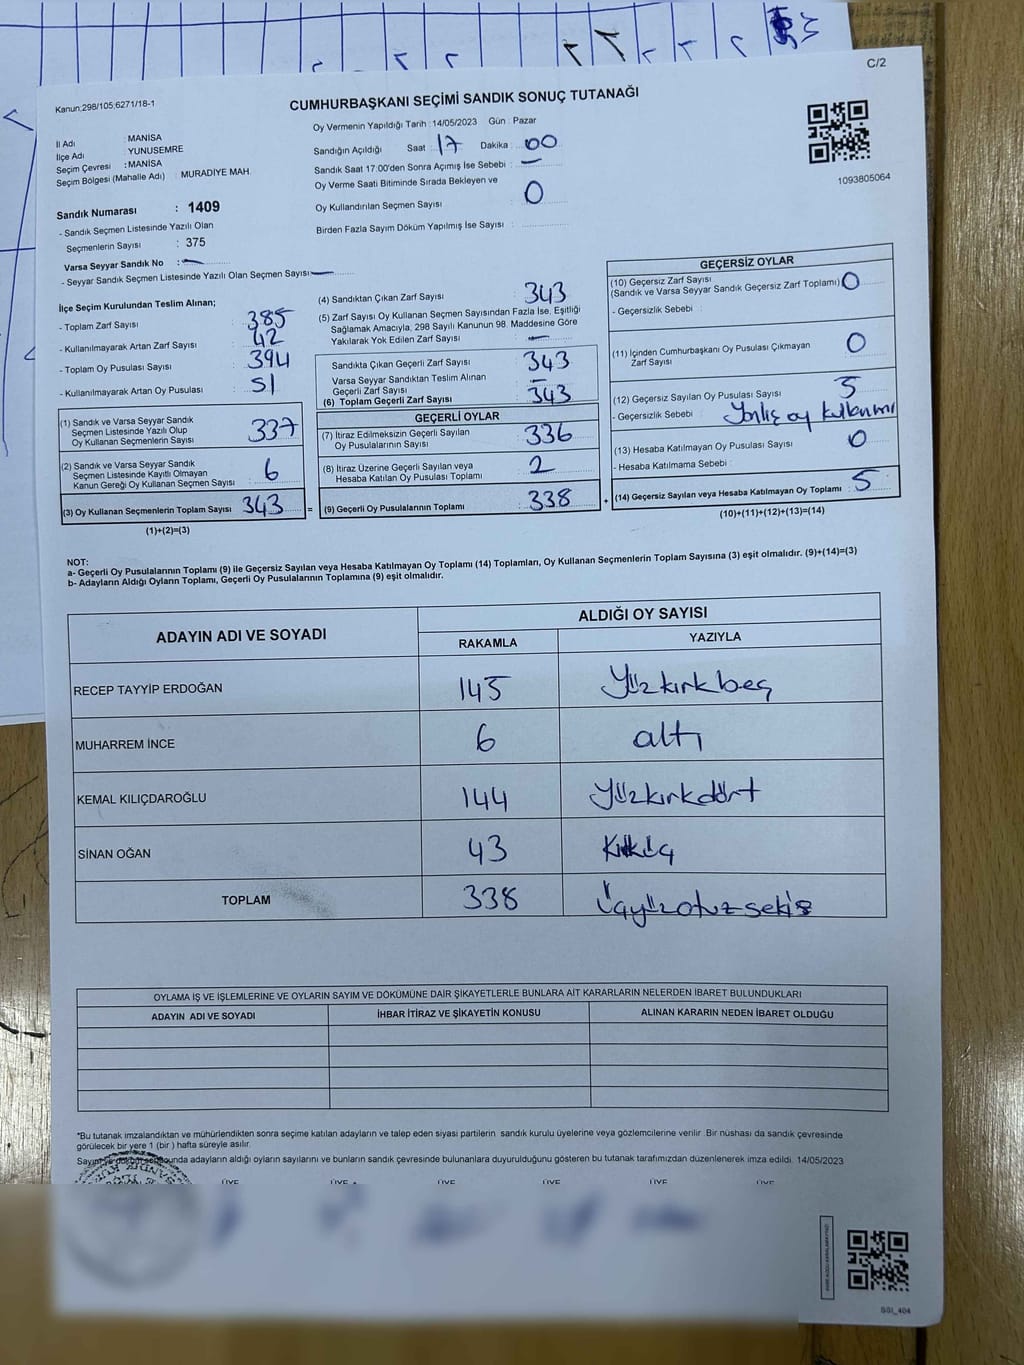 C/2
Kanun;298/105;6271/18-1
CUMHURBAŞKANI SEÇİMİ SANDIK SONUÇ TUTANAĞI
İl Adı : MANİSA
İlçe Adı : YUNUSEMRE
Seçim Çevresi : MANİSA
Seçim Bölgesi (Mahalle Adı) : MURADİYE MAH.
Sandık Numarası : 1409
- Sandık Seçmen Listesinde Yazılı Olan
Seçmenlerin Sayısı : 375
Varsa Seyyar Sandık No : —
- Seyyar Sandık Seçmen Listesinde Yazılı Olan Seçmen Sayısı: —
Oy Vermenin Yapıldığı Tarih : 14/05/2023 Gün : Pazar
Sandığın Açıldığı Saat : 17 Dakika : 00
Sandık Saat 17:00'den Sonra Açımış İse Sebebi : —
Oy Verme Saati Bitiminde Sırada Bekleyen ve
Oy Kullandırılan Seçmen Sayısı : 0
Birden Fazla Sayım Döküm Yapılmış İse Sayısı :
1093805064
İlçe Seçim Kurulundan Teslim Alınan;
- Toplam Zarf Sayısı : 385
- Kullanılmayarak Artan Zarf Sayısı : 42
- Toplam Oy Pusulası Sayısı : 394
- Kullanılmayarak Artan Oy Pusulası : 51
(1) Sandık ve Varsa Seyyar Sandık
Seçmen Listesinde Yazılı Olup
Oy Kullanan Seçmenlerin Sayısı : 337
(2) Sandık ve Varsa Seyyar Sandık
Seçmen Listesinde Kayıtlı Olmayan
Kanun Gereği Oy Kullanan Seçmen Sayısı : 6
(3) Oy Kullanan Seçmenlerin Toplam Sayısı : 343
(1)+(2)=(3)
(4) Sandıktan Çıkan Zarf Sayısı : 343
(5) Zarf Sayısı Oy Kullanan Seçmen Sayısından Fazla İse, Eşitliği
Sağlamak Amacıyla, 298 Sayılı Kanunun 98. Maddesine Göre
Yakılarak Yok Edilen Zarf Sayısı : —
Sandıkta Çıkan Geçerli Zarf Sayısı : 343
Varsa Seyyar Sandıktan Teslim Alınan
Geçerli Zarf Sayısı : —
(6) Toplam Geçerli Zarf Sayısı : 343
GEÇERLİ OYLAR
(7) İtiraz Edilmeksizin Geçerli Sayılan
Oy Pusulalarının Sayısı : 336
(8) İtiraz Üzerine Geçerli Sayılan veya
Hesaba Katılan Oy Pusulası Toplamı : 2
= (9) Geçerli Oy Pusulalarının Toplamı : 338 +
GEÇERSİZ OYLAR
(10) Geçersiz Zarf Sayısı
(Sandık ve Varsa Seyyar Sandık Geçersiz Zarf Toplamı) : 0
- Geçersizlik Sebebi :
(11) İçinden Cumhurbaşkanı Oy Pusulası Çıkmayan
Zarf Sayısı : 0
(12) Geçersiz Sayılan Oy Pusulası Sayısı : 5
- Geçersizlik Sebebi : Yanlış oy kullanımı
(13) Hesaba Katılmayan Oy Pusulası Sayısı : 0
- Hesaba Katılmama Sebebi :
(14) Geçersiz Sayılan veya Hesaba Katılmayan Oy Toplamı : 5
(10)+(11)+(12)+(13)=(14)
NOT:
a- Geçerli Oy Pusulalarının Toplamı (9) ile Geçersiz Sayılan veya Hesaba Katılmayan Oy Toplamı (14) Toplamları, Oy Kullanan Seçmenlerin Toplam Sayısına (3) eşit olmalıdır. (9)+(14)=(3)
b- Adayların Aldığı Oyların Toplamı, Geçerli Oy Pusulalarının Toplamına (9) eşit olmalıdır.
ADAYIN ADI VE SOYADI ALDIĞI OY SAYISI
RAKAMLA YAZIYLA
RECEP TAYYİP ERDOĞAN 145 Yüzkırkbeş
MUHARREM İNCE 6 altı
KEMAL KILIÇDAROĞLU 144 Yüzkırkdört
SİNAN OĞAN 43
TOPLAM 338 Üçyüzotuzsekiz
OYLAMA İŞ VE İŞLEMLERİNE VE OYLARIN SAYIM VE DÖKÜMÜNE DAİR ŞİKAYETLERLE BUNLARA AİT KARARLARIN NELERDEN İBARET BULUNDUKLARI
ADAYIN ADI VE SOYADI İHBAR İTİRAZ VE ŞİKAYETİN KONUSU ALINAN KARARIN NEDEN İBARET OLDUĞU
*Bu tutanak imzalandıktan ve mühürlendikten sonra seçime katılan adayların ve talep eden siyasi partilerin sandık kurulu üyelerine veya gözlemcilerine verilir. Bir nüshası da sandık çevresinde
görülecek bir yere 1 (bir ) hafta süreyle asılır.
Sayım ve döküm sonunda adayların aldığı oyların sayılarını ve bunların sandık çevresinde bulunanlara duyurulduğunu gösteren bu tutanak tarafımızdan düzenlenerek imza edildi. 14/05/2023
ÜYE ÜYE ÜYE ÜYE ÜYE ÜYE
SSI_404